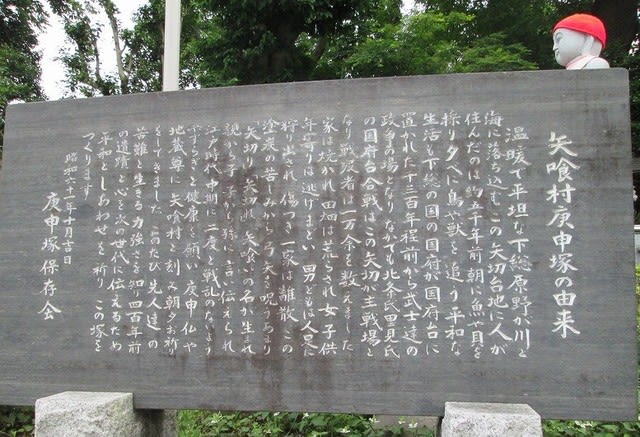 矢喰村庚申塚の由来
温暖で平坦な下総原野が川と
海に落ち込むこの矢切台地に人が
住んだのは約五千年前朝に魚や貝を
採り夕べに鳥や獣を追う平和な
生活も下総の国の国府が国府台に
置かれた千三百年程前から武士達の
政争の場となりなかでも北条氏里見氏
の国府台合戦はこの矢切が主戦場と
なり戦死者は一万余を数えました
家は焼かれ田畑は荒らされ女子供
年寄りは逃げまどい男どもは人足に
狩り出され傷つき一家は離散この
塗炭の苦しみから弓矢を呪うあまり
矢切り矢切れ矢喰いの名が生まれ
親から子子から孫に言い伝えられ
江戸時代中期に二度と戦乱のないよう
やすらぎと健康を願い庚申仏や
地蔵尊に矢喰村と刻み朝夕お祈り
をしてきましたこのたび先人達の
苦難と生きる力強さを知り四百年前
の遺績と心を次の世代に伝えるため
平和としあわせを祈りこの塚を
つくります
昭和六十一年十月吉日
庚申塚保存会